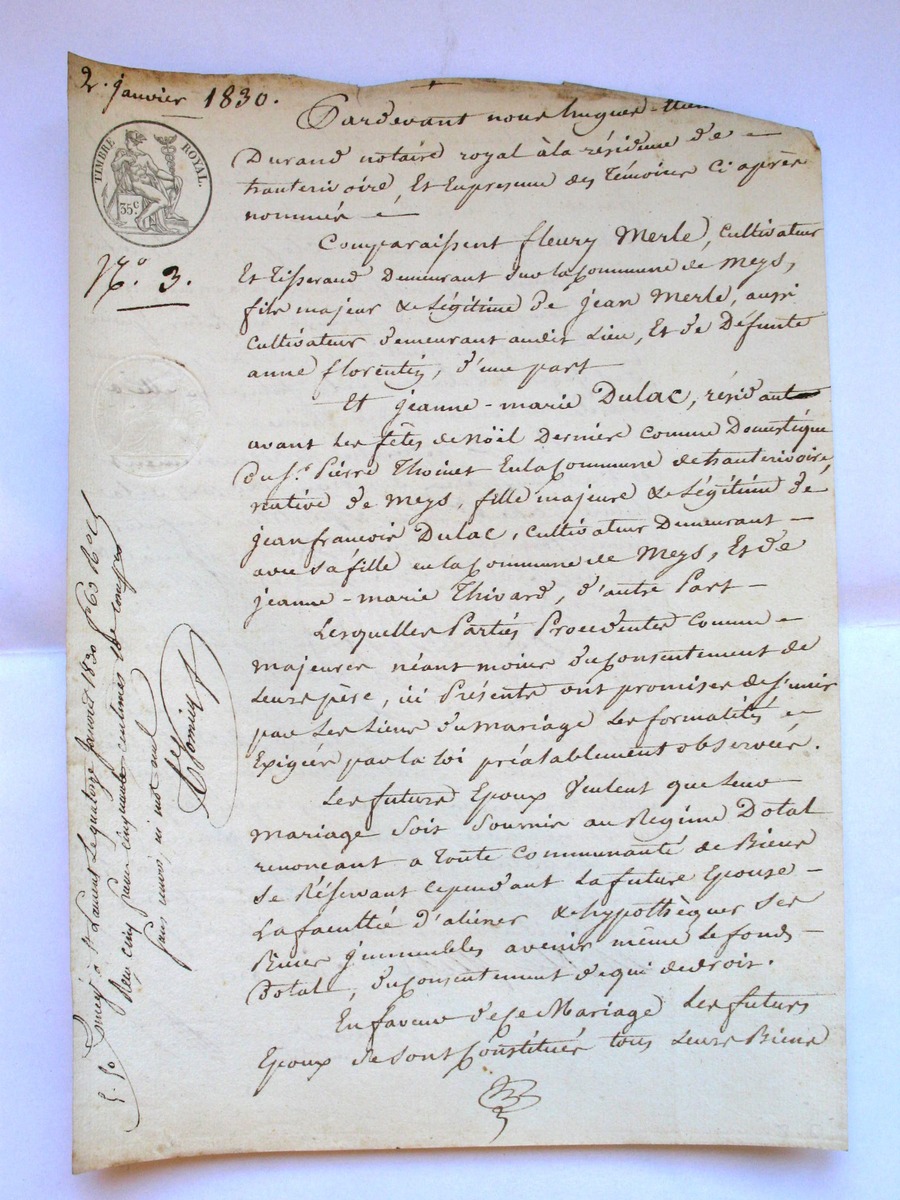 2. janvier 1830.
TIMBRE ROYAL.
35.c
N.o 3.
Pardevant nous hugues
Durand notaire royal à la résidence de
hauterivoire, Et En presence des Témoins Ci après
nommés
Comparaissent fleury Merle, cultivateur
Et Tisserand Demeurant sur la Commune de Meys,
fils majeur & Légitime de jean Merle, aussi
Cultivateur demeurant audit Lieu, Et de Défunte
anne florentin, d'une part
Et jeanne-marie Dulac, résidant
avant Les fêtes de Nöel Dernier comme Domestique
du Sr. Pierre Thoinet En la Commune de hauterivoire,
native de Meys, fille majeure & Légitime de
jean francois Dulac, cultivateur Demeurant
avec sa fille en la Commune de Meys, Et de
jeanne-marie Thivard, d'autre Part
Lesquelles Parties Procedentes Comme
majeures néantmoins du Consentement de
Leurs père, ici Présents ont promises de s'unir
par Les Liens du mariage Les formalités
Exigées par la Loi préalablement observées.
Les futurs Epoux Veulent que Leur
mariage soit soumis au Regime Dotal
renoncant a Toute Communauté de Biens
se Réservant cependant La future Epouse
La faculté d'aliéner & d'hypothèquer ses
Biens jmmeubles avenir même Le fonds
Dotal, du Consentement de qui de droit.
En faveur de Ce Mariage Les futurs
Epoux se sont Constitués tous Leurs Biens
à St. Laurent Le quatorze janvier 1830 fo. 63
Reçu cinq francs cinquante centimes 10e compris
sans renvoi, ni mot nul
5. 50